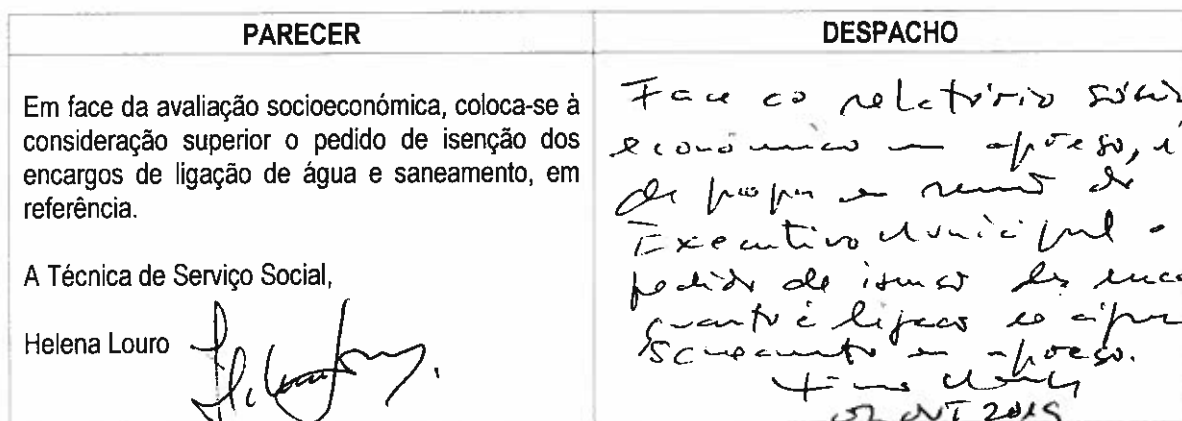 PARECER
DESPACHO
Em face da avaliação socioeconómica, coloca-se à
consideração superior o pedido de isenção dos
encargos de ligação de água e saneamento, em
referência.
A Técnica de Serviço Social,
Helena Louro
Face ao relatório sócio
económico em apreço, é
de propor em reunião do
Executivo Municipal o
pedido de isenção dos
quanto à ligação de água
saneamento em apreço.
OUT 2019